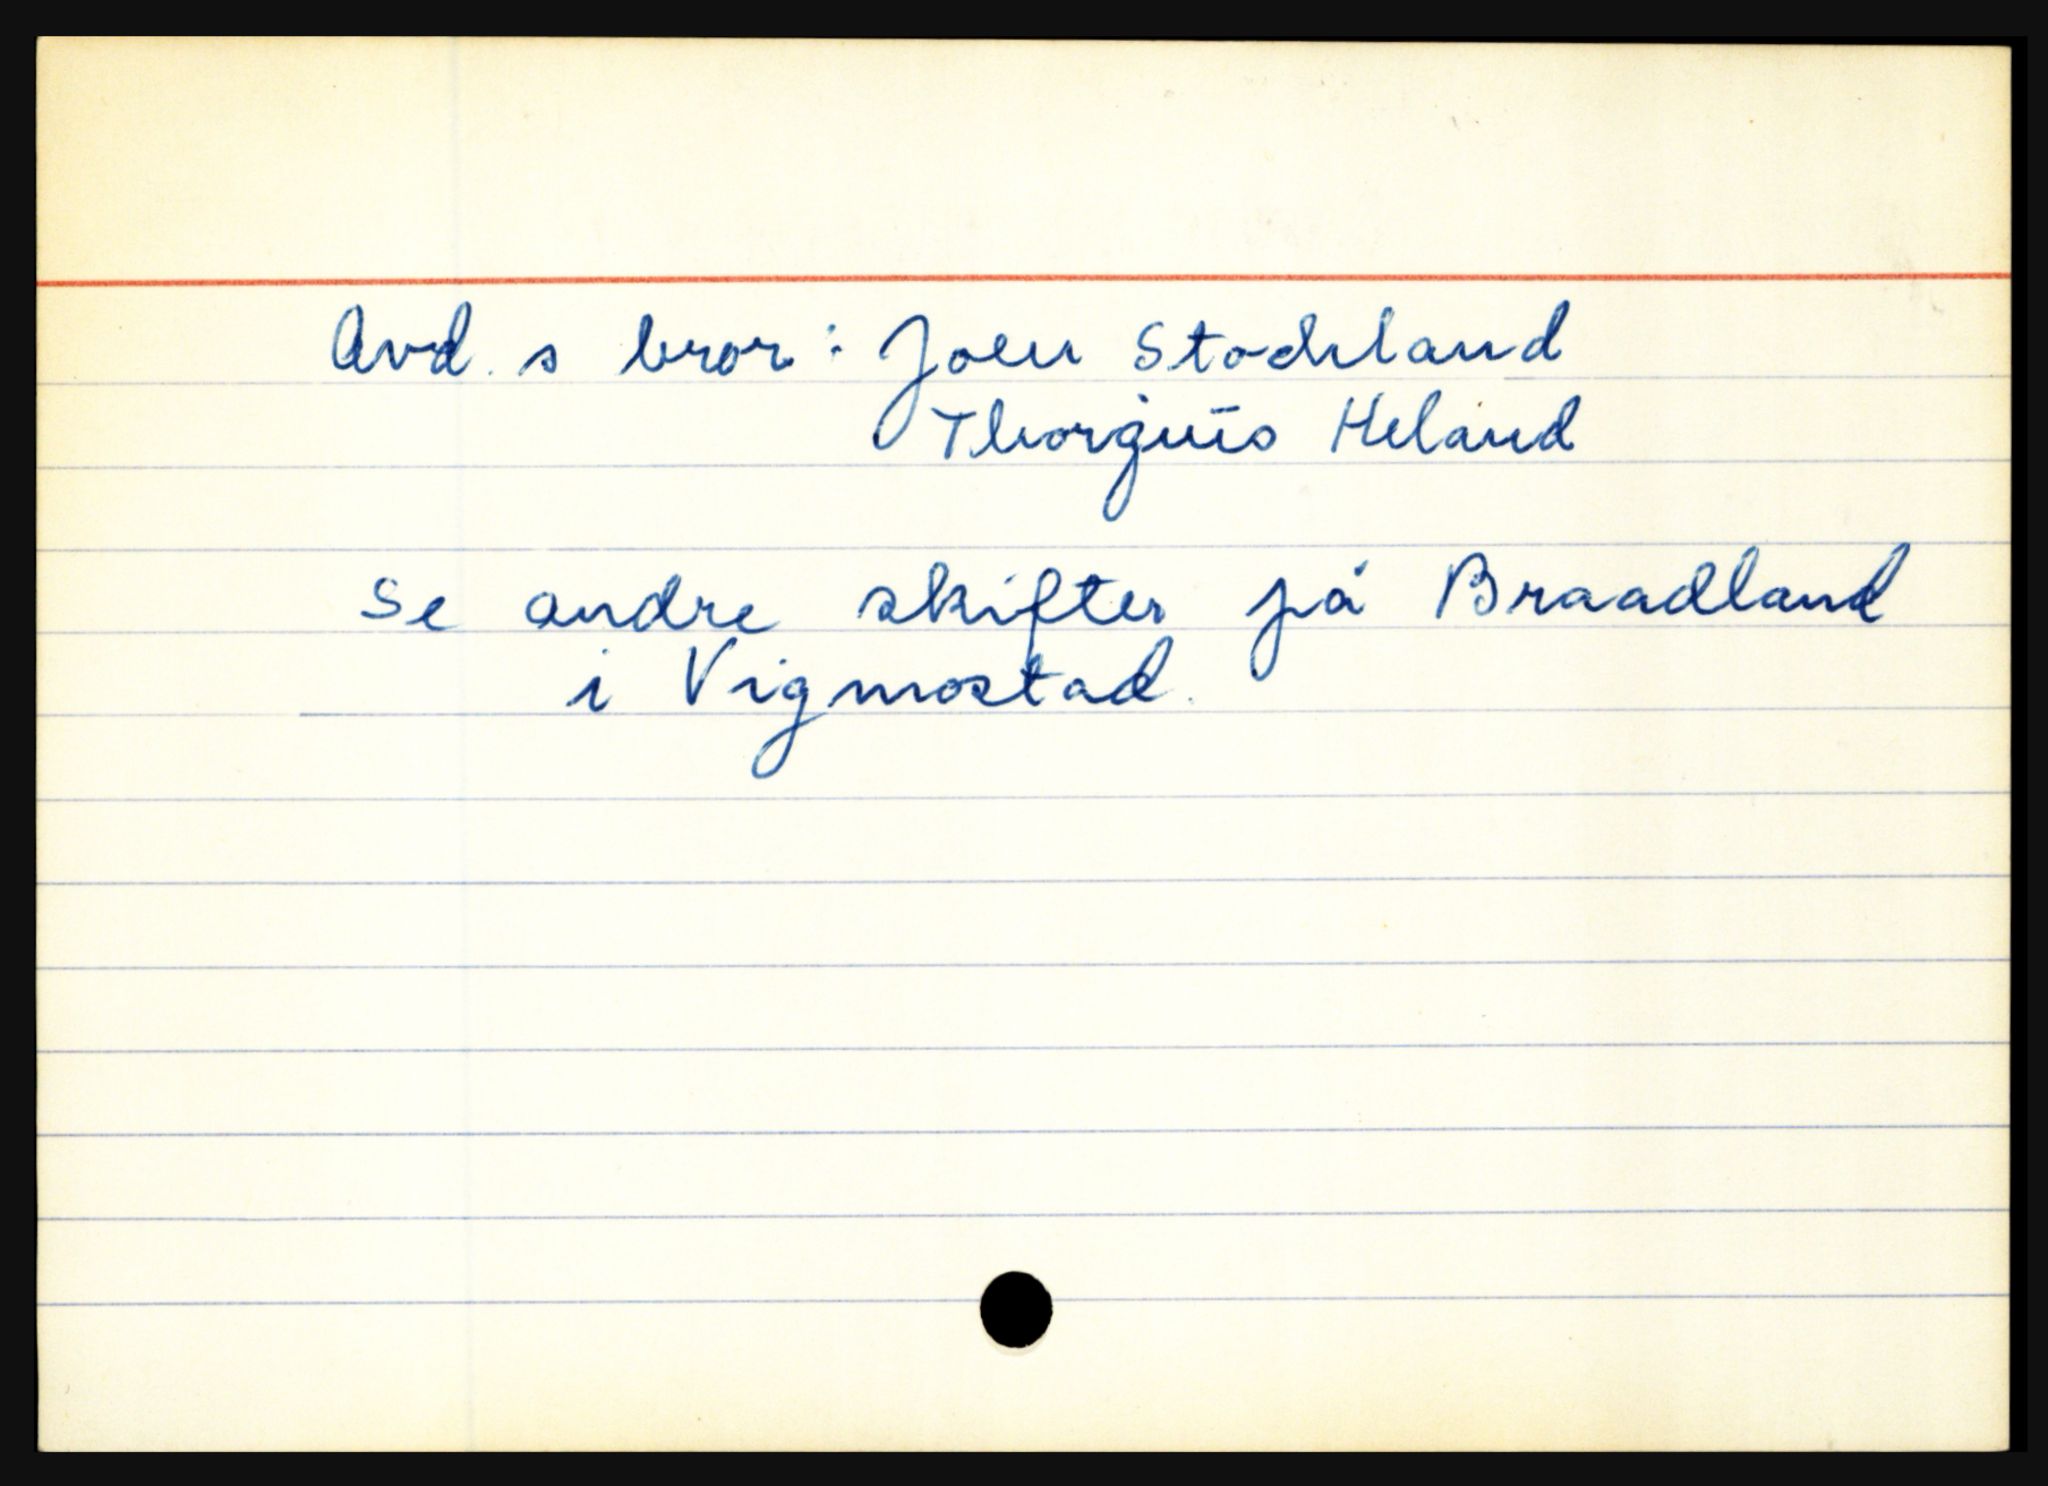 Avd. s bror: Joen Stochland
Thorguĩs Heland
Se andre skifter på Braadland
i Vigmostad.